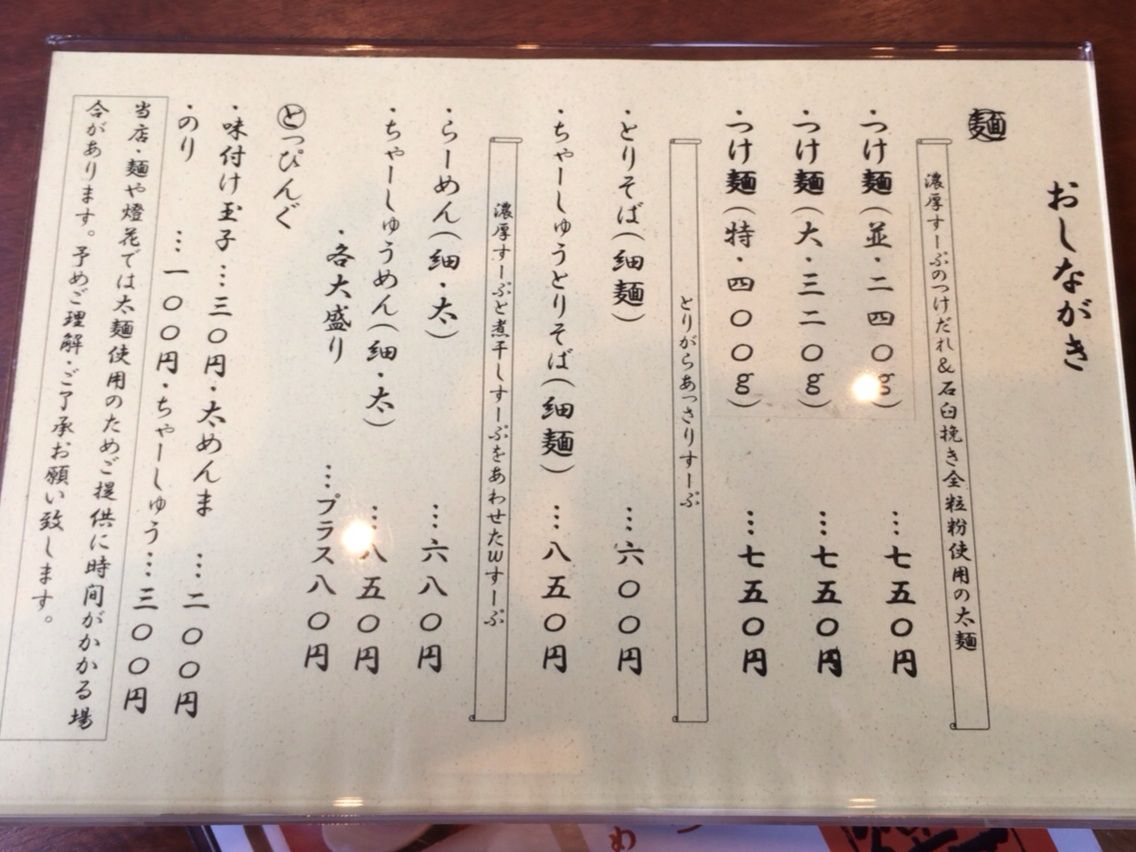 おしながき
麺
濃厚すーぷのつけだれ&石臼挽き全粒粉使用の太麺
・つけ麺(並・二四〇g) …七五〇円
・つけ麺(大・三二〇g) …七五〇円
・つけ麺(特・四〇〇g) …七五〇円
とりがらあっさりすーぷ
・とりそば(細麺) …六〇〇円
・ちゃーしゅうとりそば(細麺) …八五〇円
濃厚すーぷと煮干しすーぷをあわせたWすーぷ
・らーめん(細・太) …六八〇円
・ちゃーしゅうめん(細・太) …八五〇円
・各大盛り …プラス八〇円
とっぴんぐ
・味付け玉子…三〇円・太めんま …二〇〇円
・のり …一〇〇円・ちゃーしゅう…三〇〇円
当店・麺や燈花では太麺使用のためご提供に時間がかかる場
合があります。予めご理解・ご了承お願い致します。